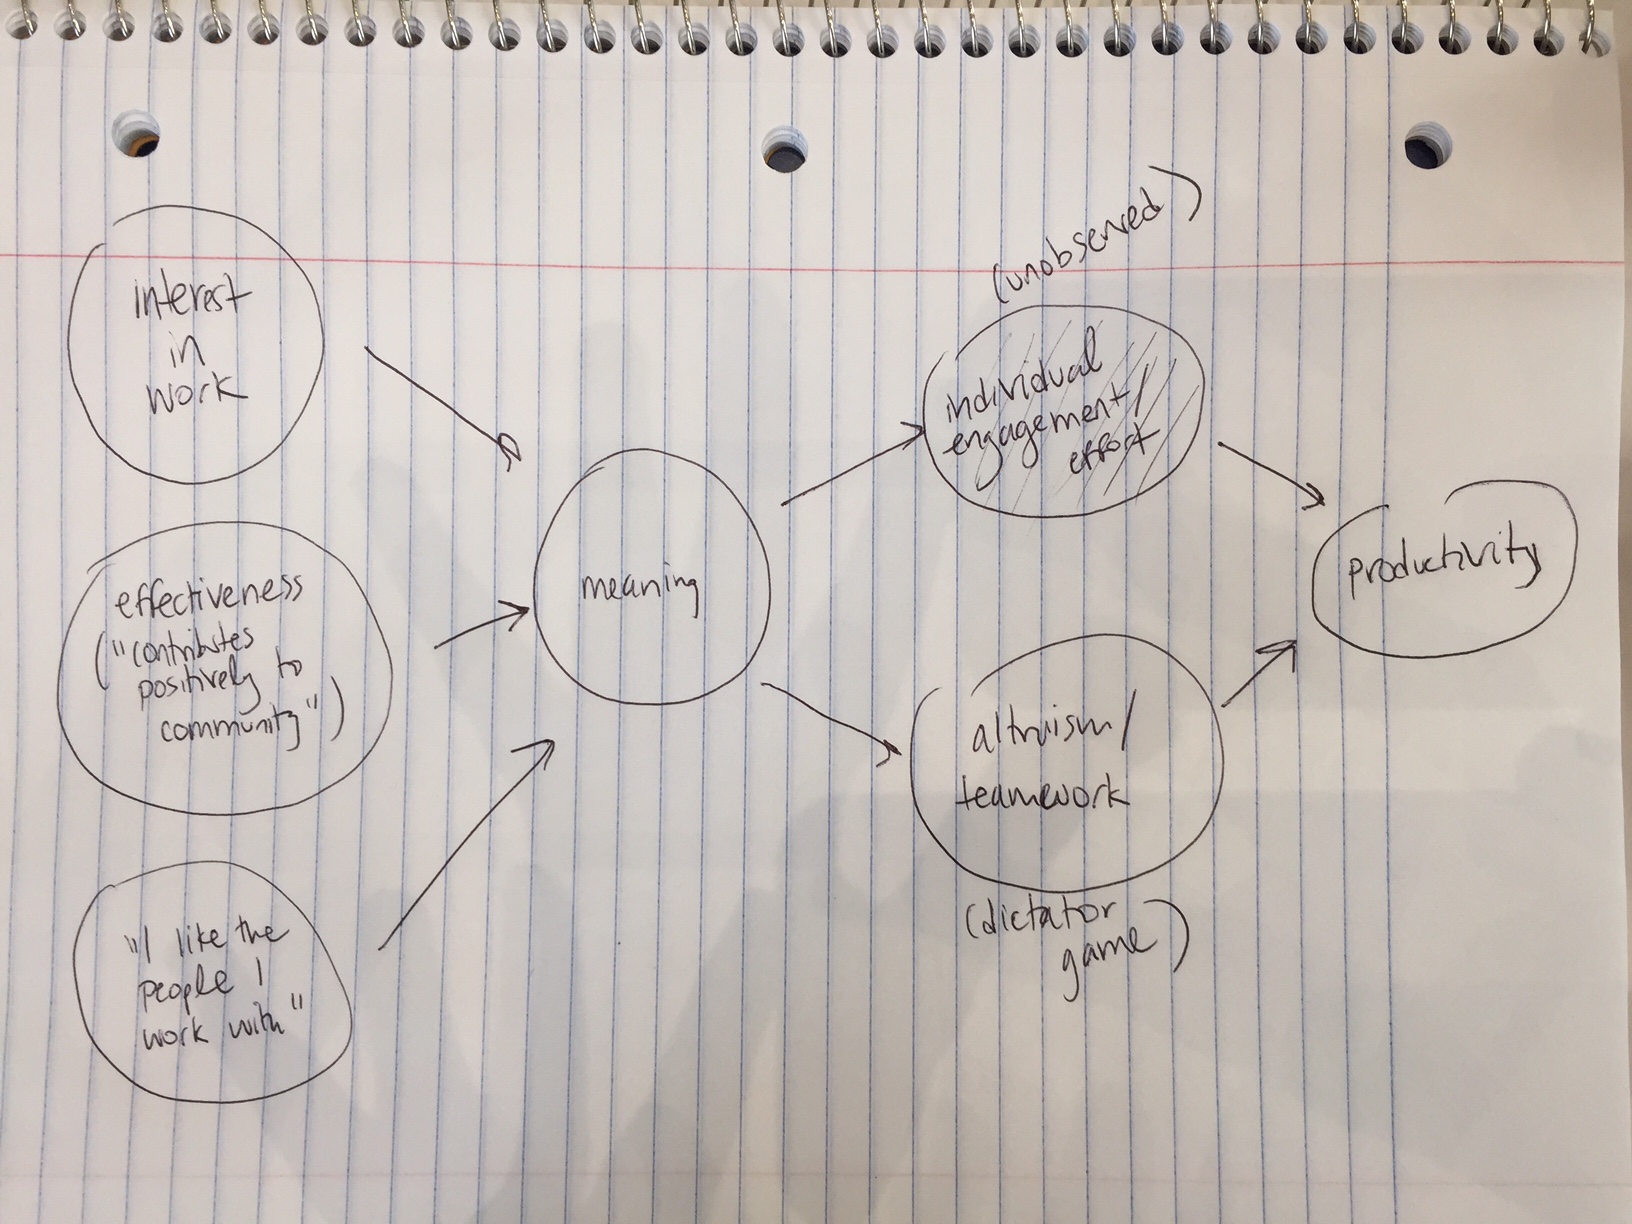 interest
in
work
effectiveness
("contributes
positively to
community")
"I like the
people I
work with"
meaning
(unobserved)
individual
engagement/
effort
altruism/
teamwork
(dictator
game)
productivity